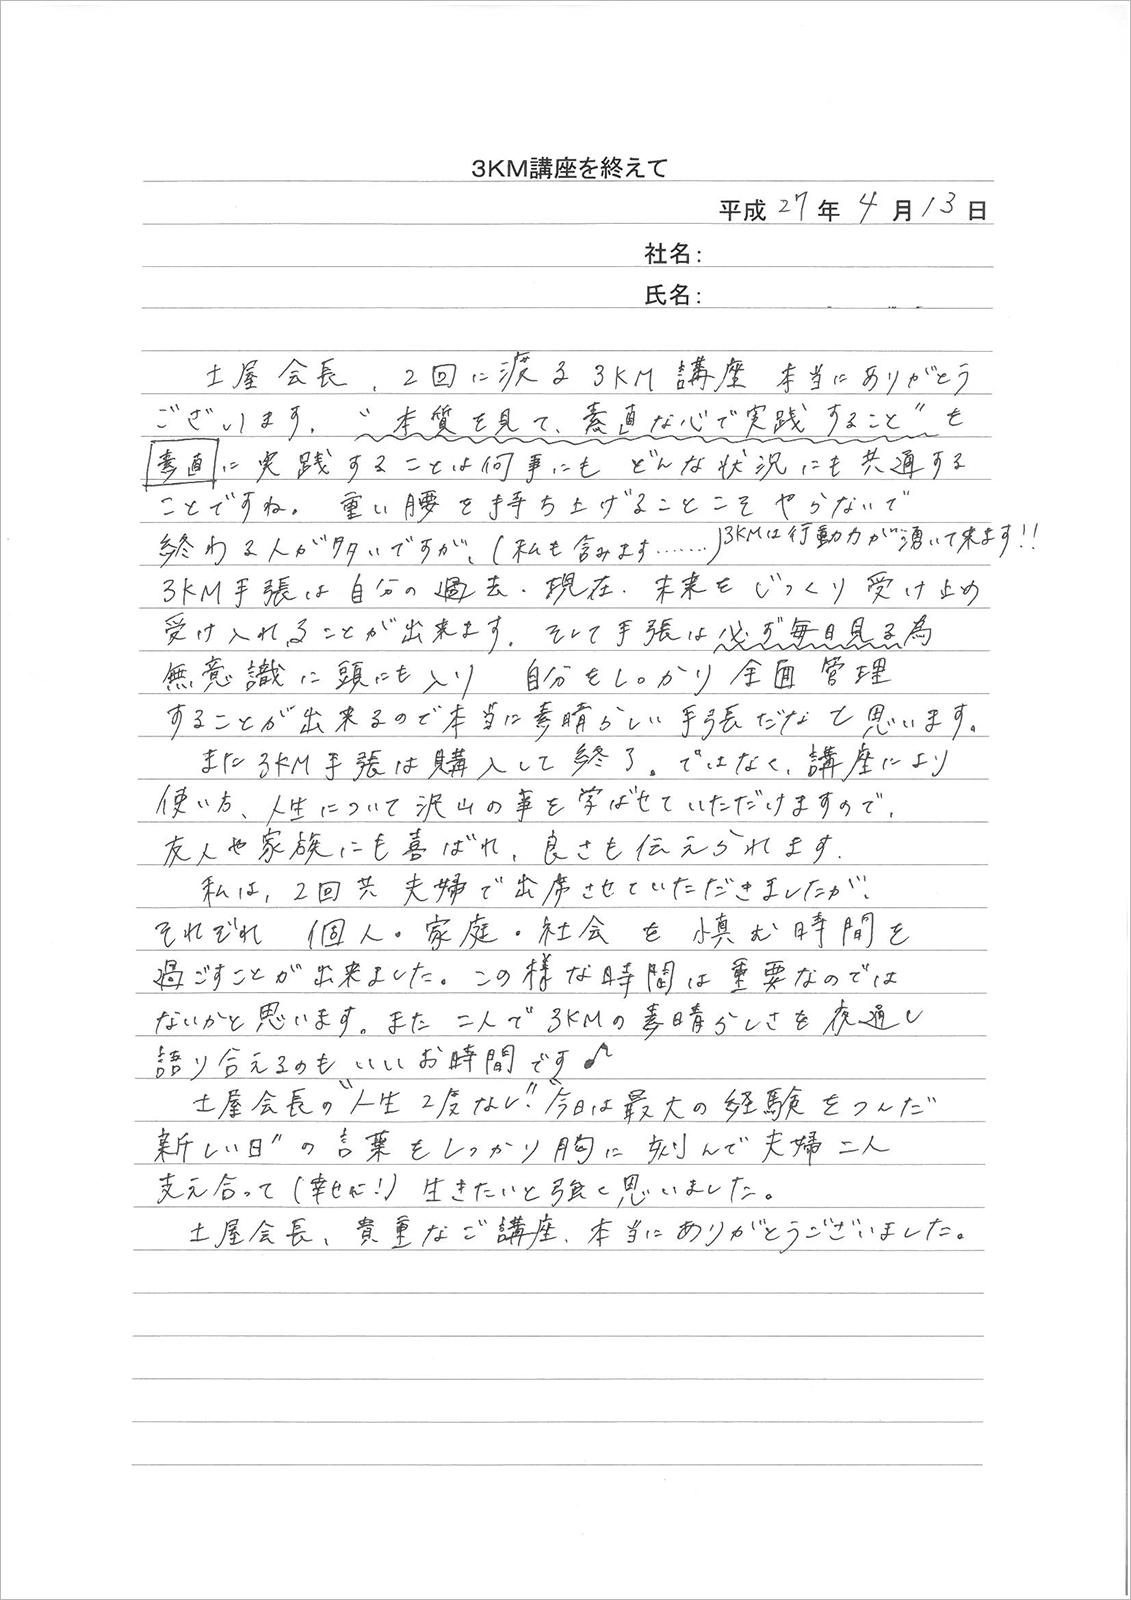 3KM講座を終えて
平成27年4月13日
社名:
氏名:
土屋会長、2回に渡る3KM講座本当にありがとう
ございます。“本質を見て、素直な心で実践すること”を
素直に実践することは何事にもどんな状況にも共通する
ことですね。重い腰を持ち上げることこそやらないで
終わる人が多いですが、(私も含みます……)3KMは行動力が湧いて来ます!!
3KM手張は自分の過去・現在・未来をじっくり受け止め
受け入れることが出来ます。そして手張は必ず毎日見る為
無意識に頭にも入り 自分をしっかり全面管理
することが出来るので本当に素晴らしい手張だなと思います。
また3KM手張は購入して終了。ではなく、講座により
使い方、人生について沢山の事を学ばせていただけますので、
友人や家族にも喜ばれ、良さも伝えられます。
私は、2回共夫婦で出席させていただきましたが、
それぞれ 個人・家庭・社会を慎む時間を
過ごすことが出来ました。この様な時間は重要なのでは
ないかと思います。また二人で3KMの素晴らしさを夜通し
語り合えるのもいいお時間です♪
土屋会長の“人生2度なし”“今日は最大の経験をつんだ
新しい日”の言葉をしっかり胸に刻んで夫婦二人
支え合って(幸せに!)生きたいと強く思いました。
土屋会長、貴重なご講座、本当にありがとうございました。